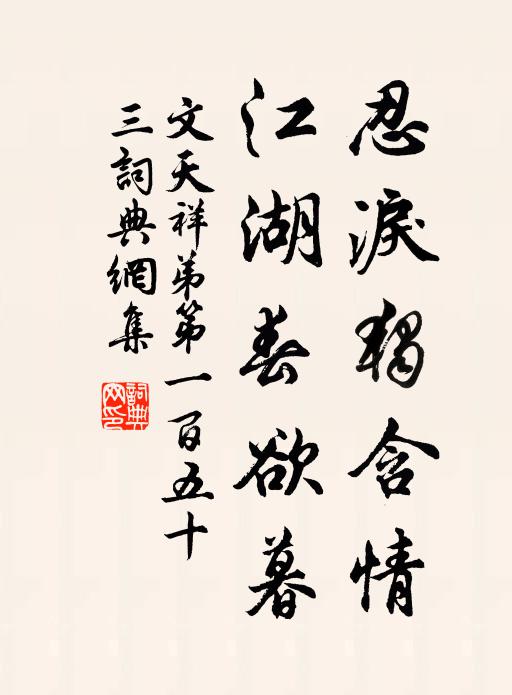 忍淚獨含情
江湖春欲暮
文天祥弟第一百五十
三詞典網集
詞典
网印